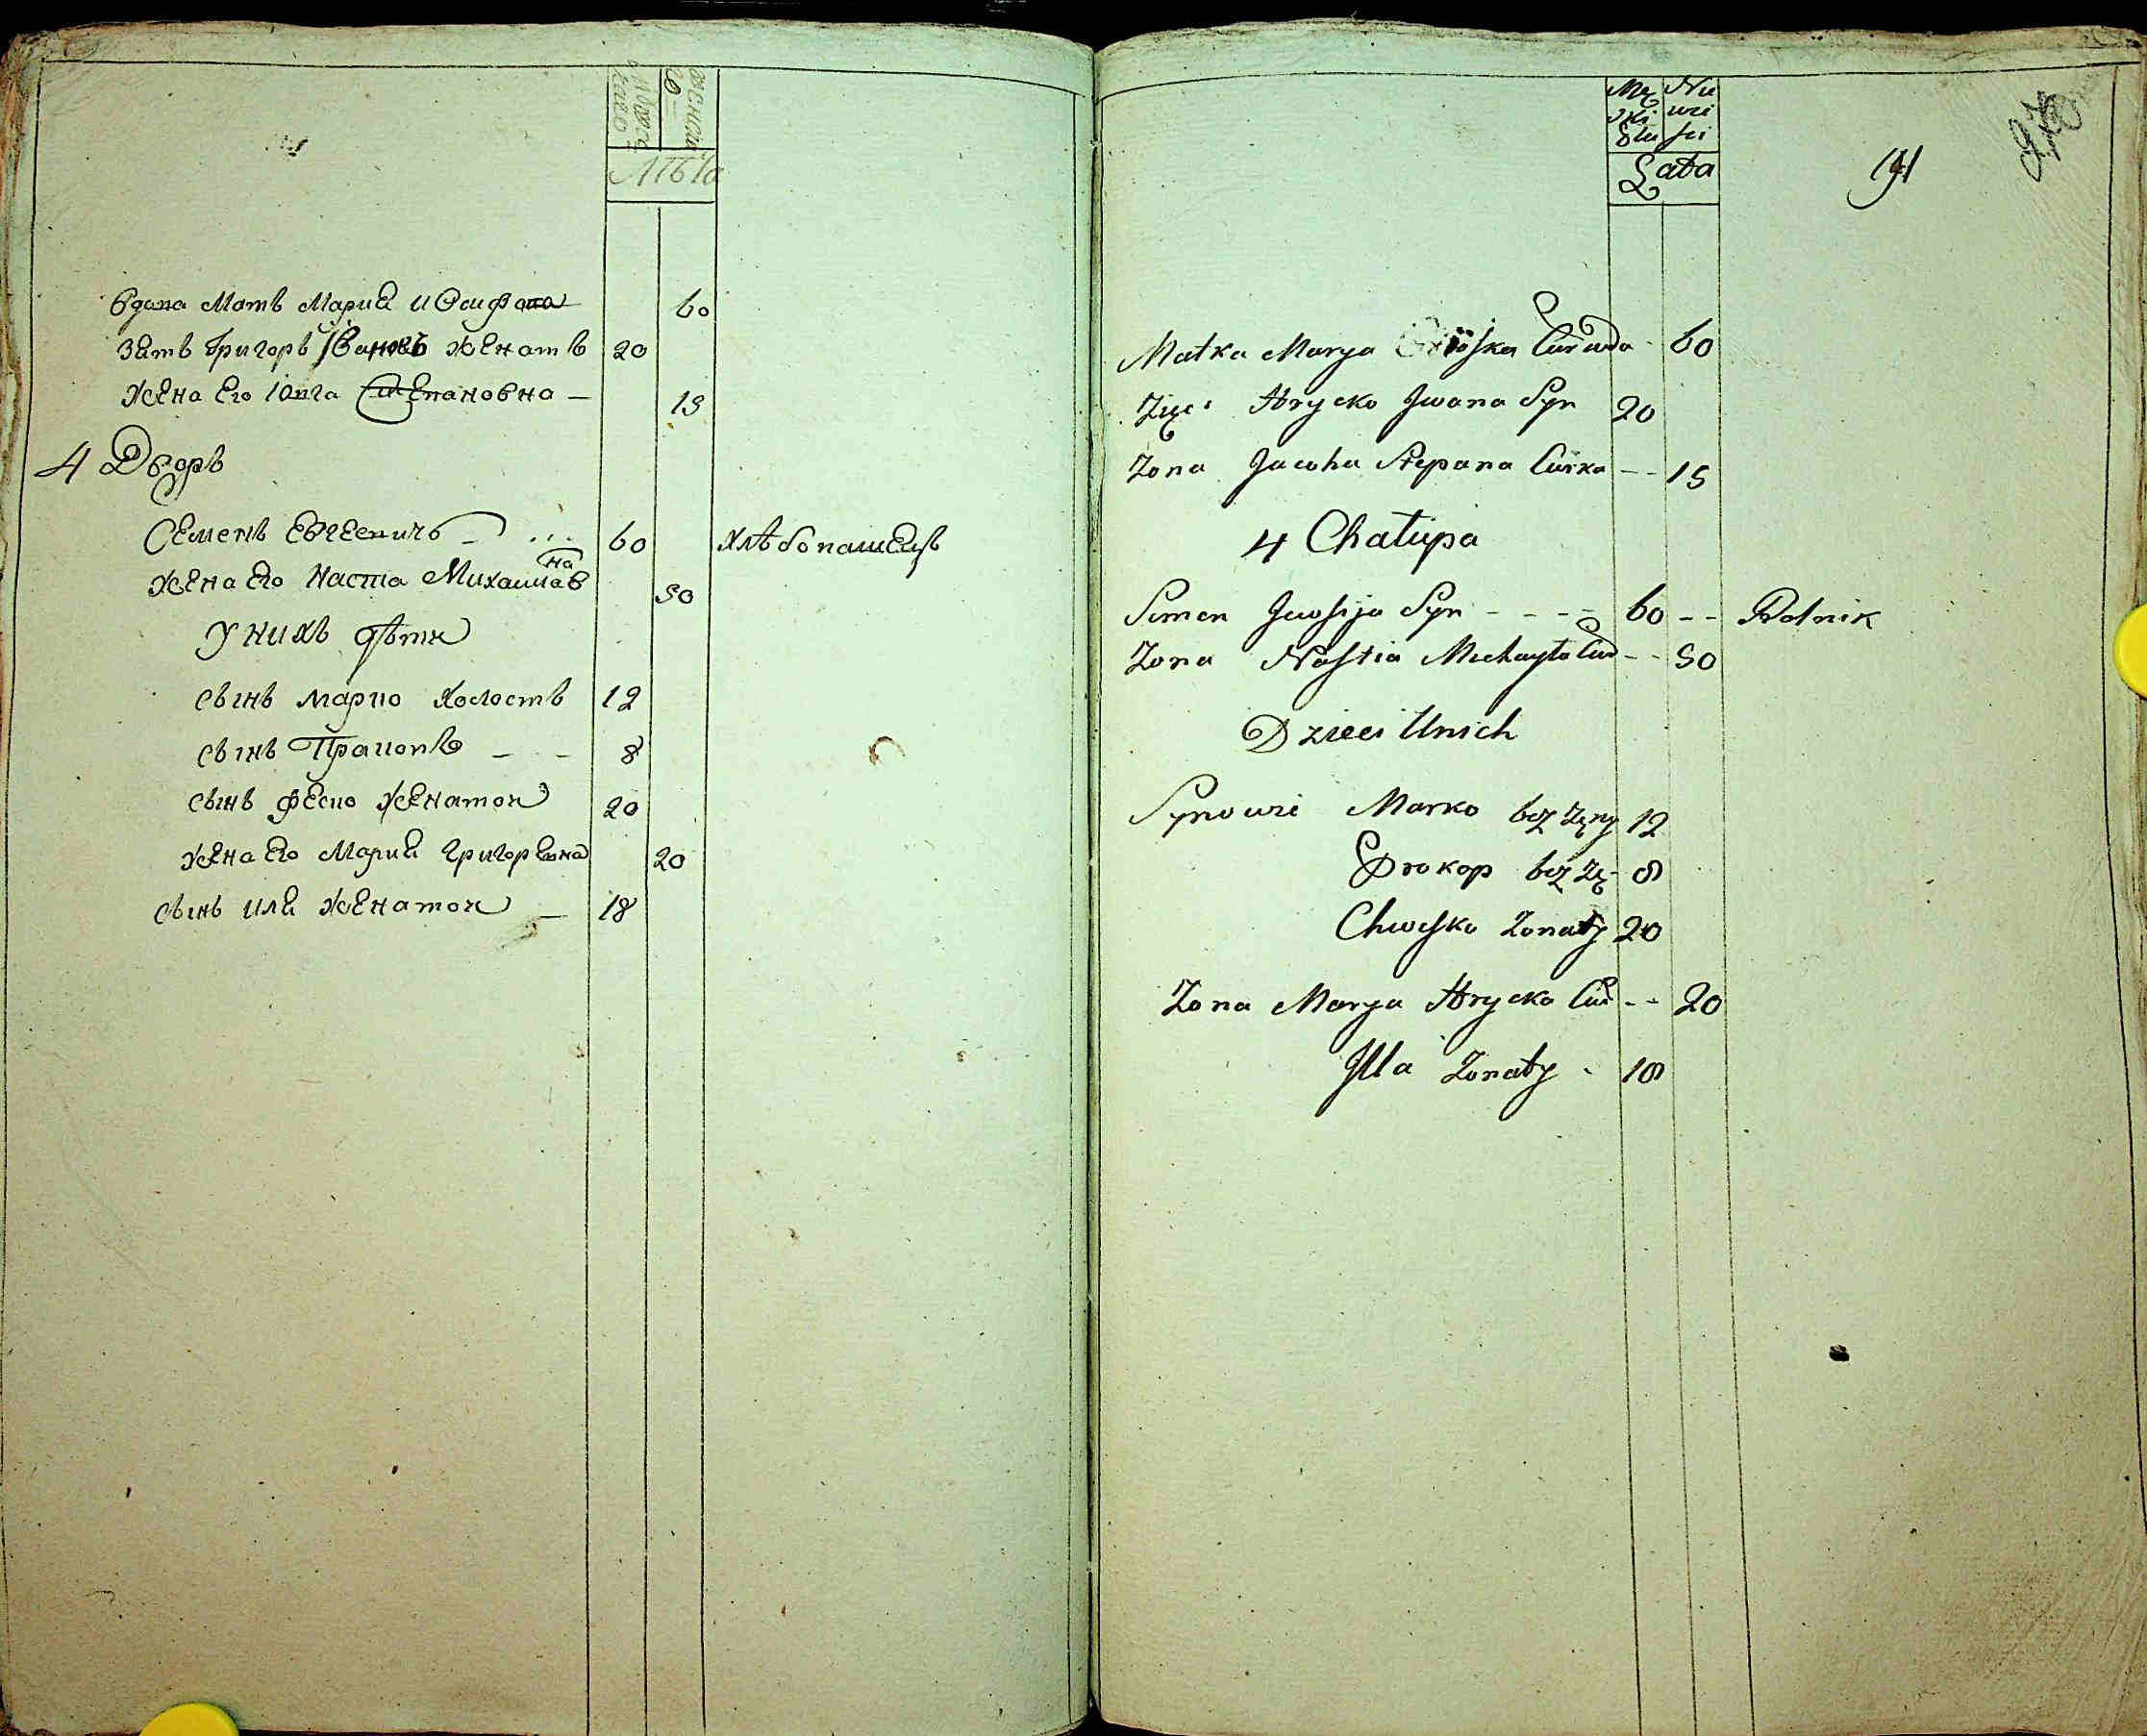 мужеска
женска
Лѣта
вдова мать Мария
60
зять Григоръ Ивановъ женатъ 20
жена его Юнга Степановна — 15
4 Дворъ
Семенъ Евгеевичъ — 60 хлѣбопашецъ
жена его Наста Михайловна 50
у нихъ дѣти
сынъ марко холостъ 12
сынъ Прокопъ — — 8
сынъ Феско женатои 20
жена его Мария григорьевна 20
сынъ или женатои — 18
Męż Nie
ski wie
Stu sci
Lata
191
Matka Marya Curka wda - 60
Zięć Hrycko Jwana Syn 20
Zona Jewha Stepana Curka -- 15
4 Chałupa
Semen Jewsija Syn - - - - 60 -- Rolnik
Zona Nastia Michayła Cur -- 50
Dzieci Unich
Synowie Marko bez Zęny 12
Prokop bez Zę- 8
Chwesko Zonaty 20
Zona Marya Hrycka Cur -- 20
Jlla Zonaty - 18